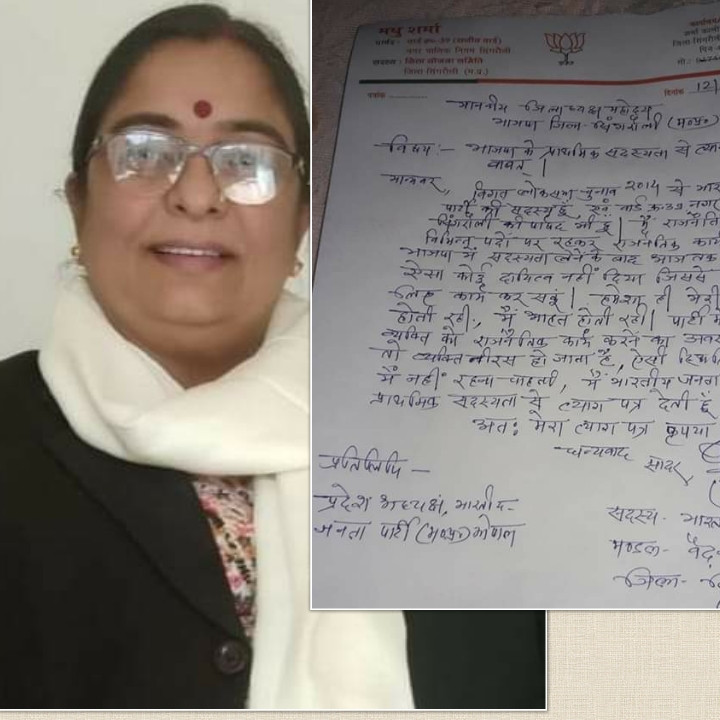 मधु शर्मा
पार्षद: वार्ड क्र.-39
नगर पालिक निगम सिंगरौली
सदस्य: जिला योजना समिति
जिला सिंगरौली (म.प्र.)
दिनांक 12/
माननीय जिलाध्यक्ष महोदय
भाजपा जिला-सिंगरौली (म०प्र०)
विषय:- भाजपा के प्राथमिक सदस्यता से त्याग
बावत् |
मान्यवर,
विगत लोकसभा चुनाव 2014 से
पार्टी की सदस्य हूँ, एवं वार्ड क्र-39 नगर
सिंगरौली की पार्षद भी हूँ | मैं
विभिन्न पदों पर रहकर राजनैतिक कार्य
भाजपा में सदस्यता लेने के बाद आज तक
ऐसा कोई दायित्व नहीं दिया जिससे
लिए कार्य कर सकूं | हमेशा ही मेरी
होती रही, मैं आहत होती रही | पार्टी में
व्यक्ति को राजनैतिक कार्य करने का
तो व्यक्ति नीरस हो जाता है, ऐसी
में नहीं रहना चाहती, मैं भारतीय जनता
प्राथमिक सदस्यता से त्याग पत्र देती हूँ
अत: मेरा त्याग पत्र कृपया
धन्यवाद सादर
प्रतिलिपि -
प्रदेश अध्यक्ष, भारतीय-
जनता पार्टी (म०प्र०) भोपाल
सदस्य-
मण्डल-
जिला-